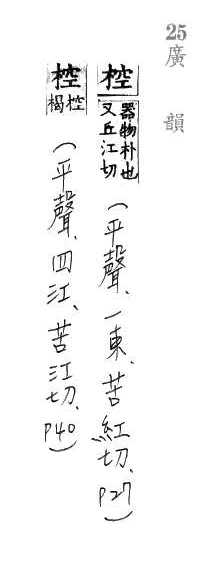 25廣韻
椌 器物朴也又丘江切(平聲、一東、苦紅切、P27)
椌 椌楬(平聲、四江、苦江切、P40)